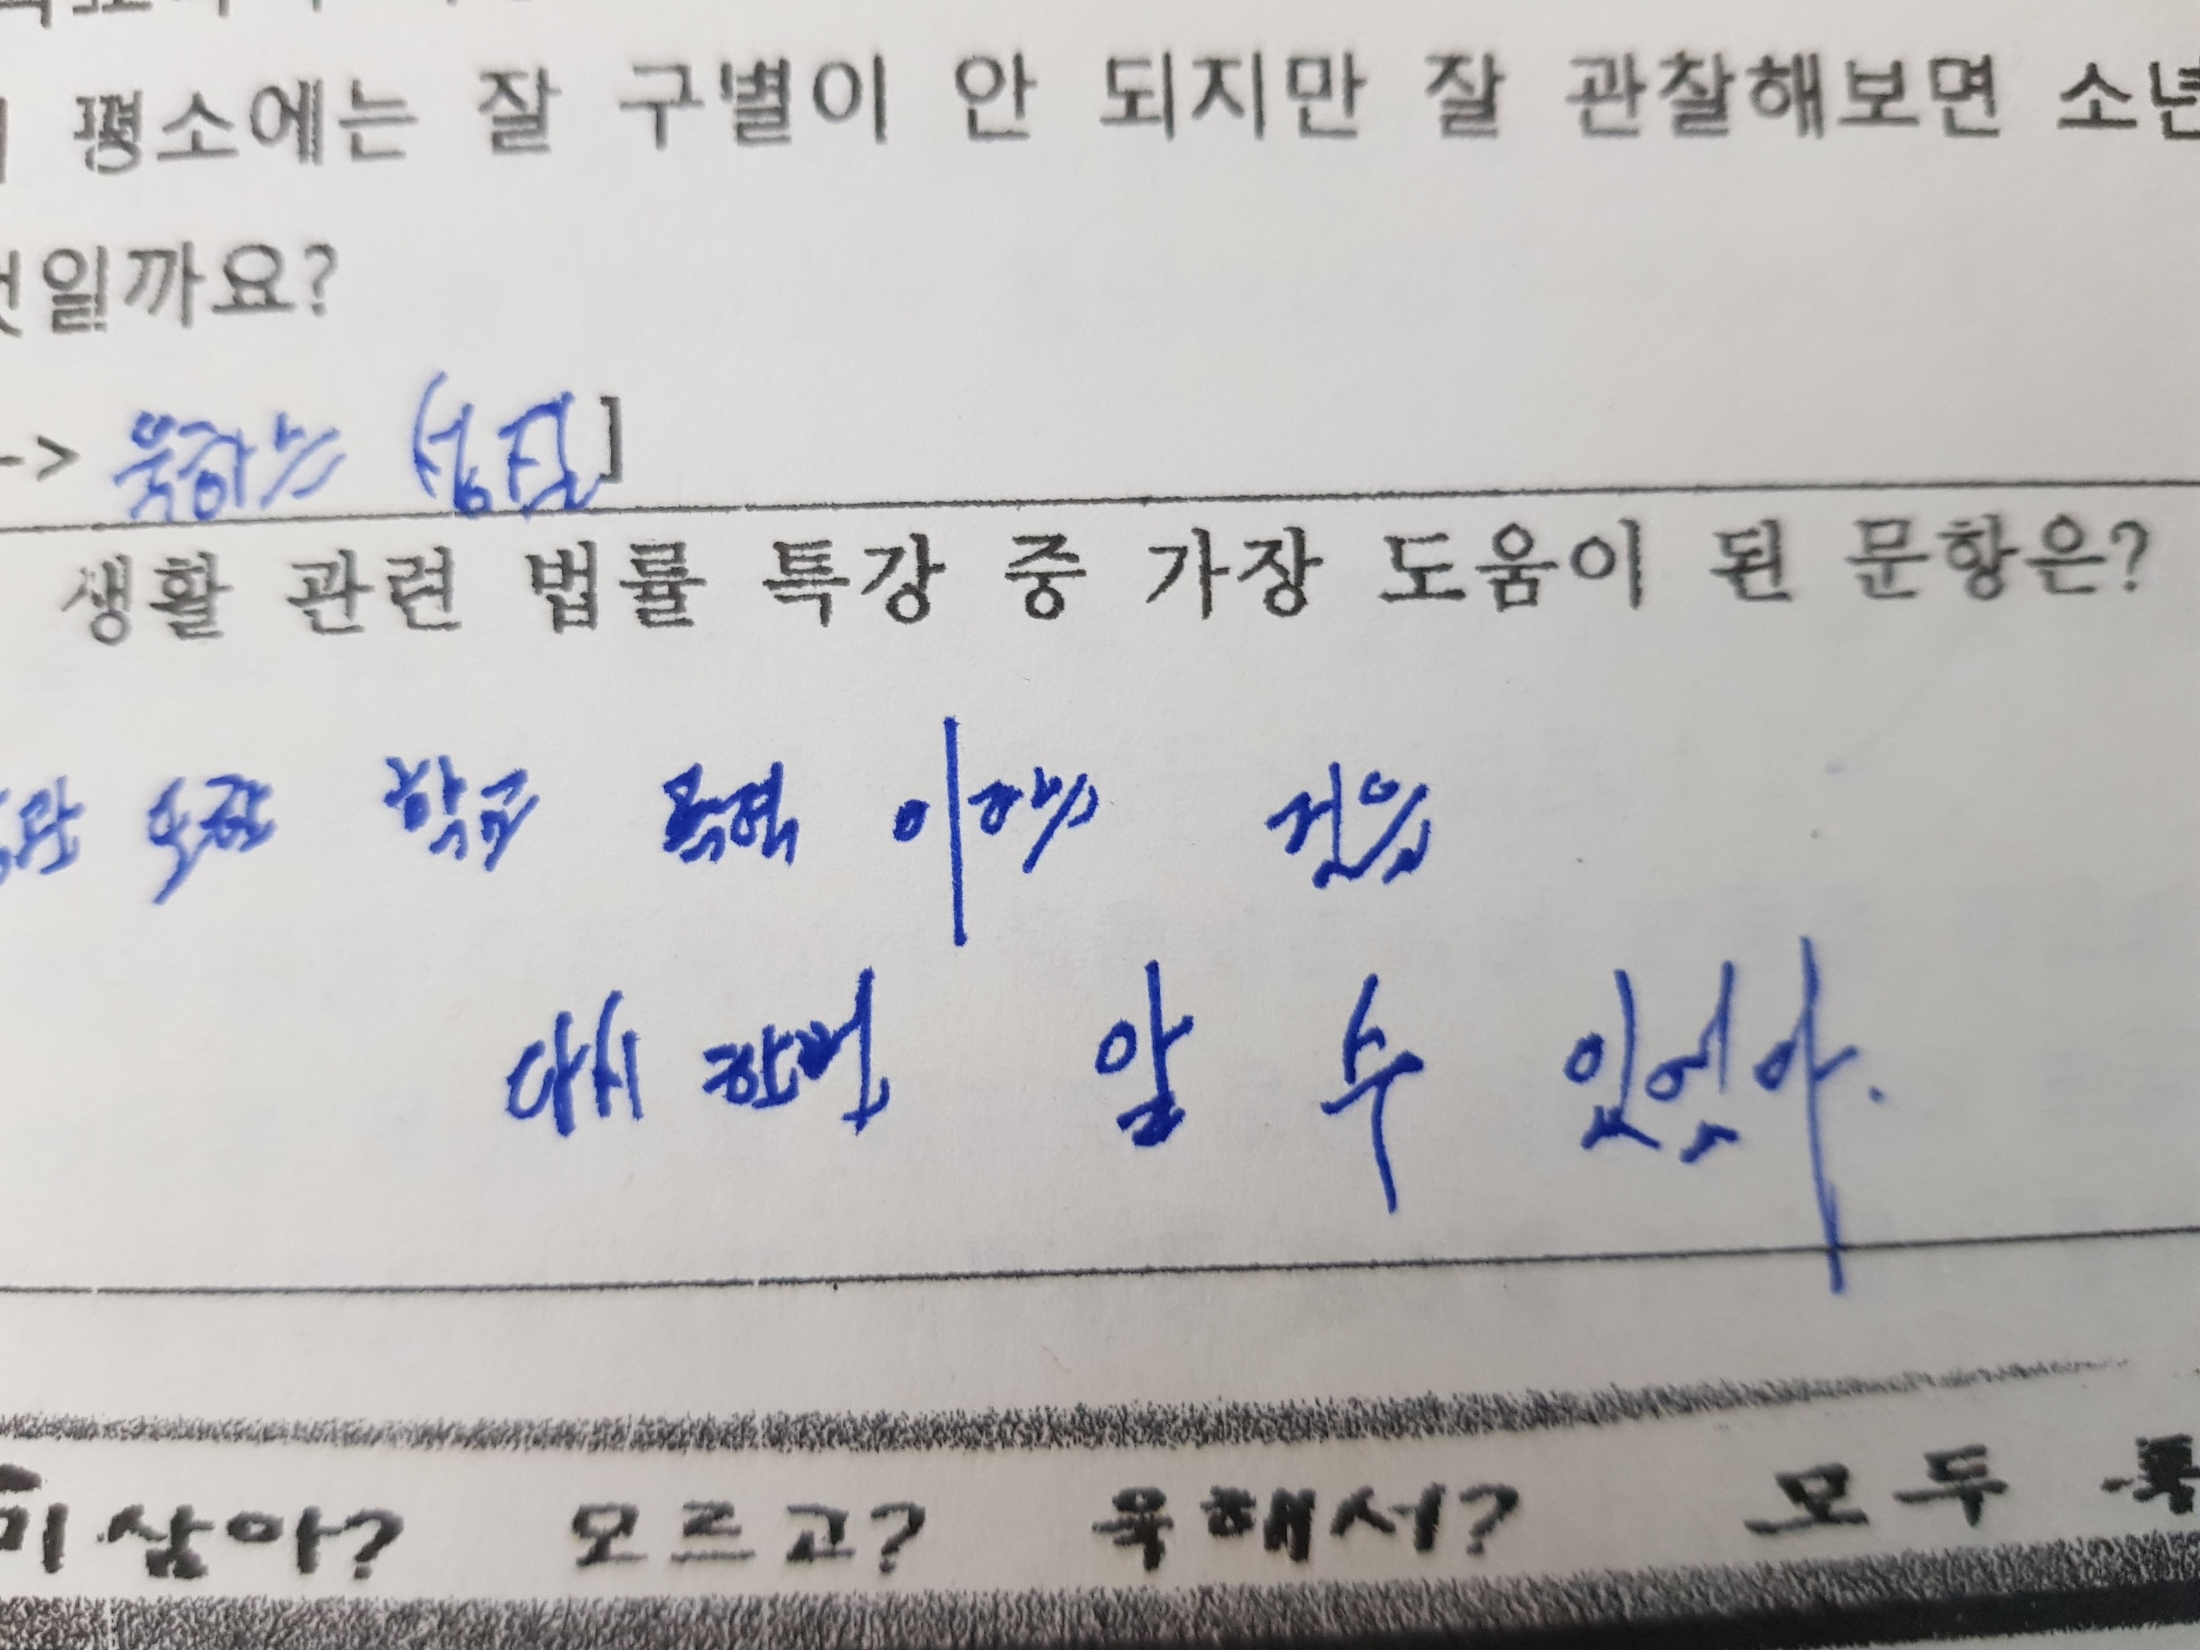 평소에는 잘 구별이 안 되지만 잘 관찰해보면 소년
일까요?
->
생활 관련 법률 특강 중 가장 도움이 된 문항은?
학교 폭력 이라는 것을
다시 한번 알 수 있었다.
미삼아? 모르고? 욱해서? 모두